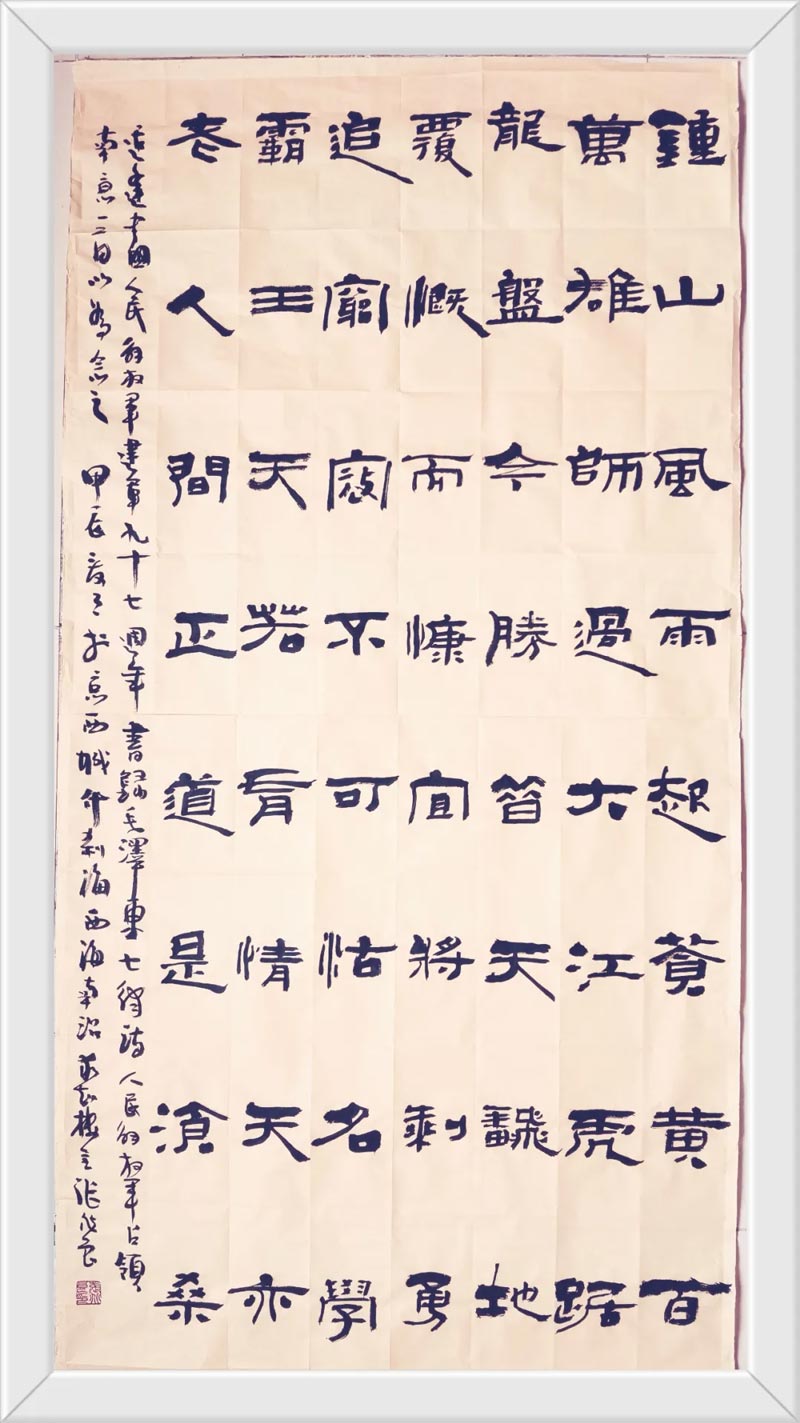 鍾山風雨起蒼黃百
萬雄師過大江虎踞
龍盤今勝昔天飜地
覆慨而慷宜將剩勇
追窮寇不可沽名學
霸王天若有情天亦
老人間正道是滄桑
適逢中國人民解放軍建軍九十七週年書錄毛澤東七律詩人民解放軍占領
南京一首以為念之 甲辰夏月於京西城什刹海西海南沿樓主張